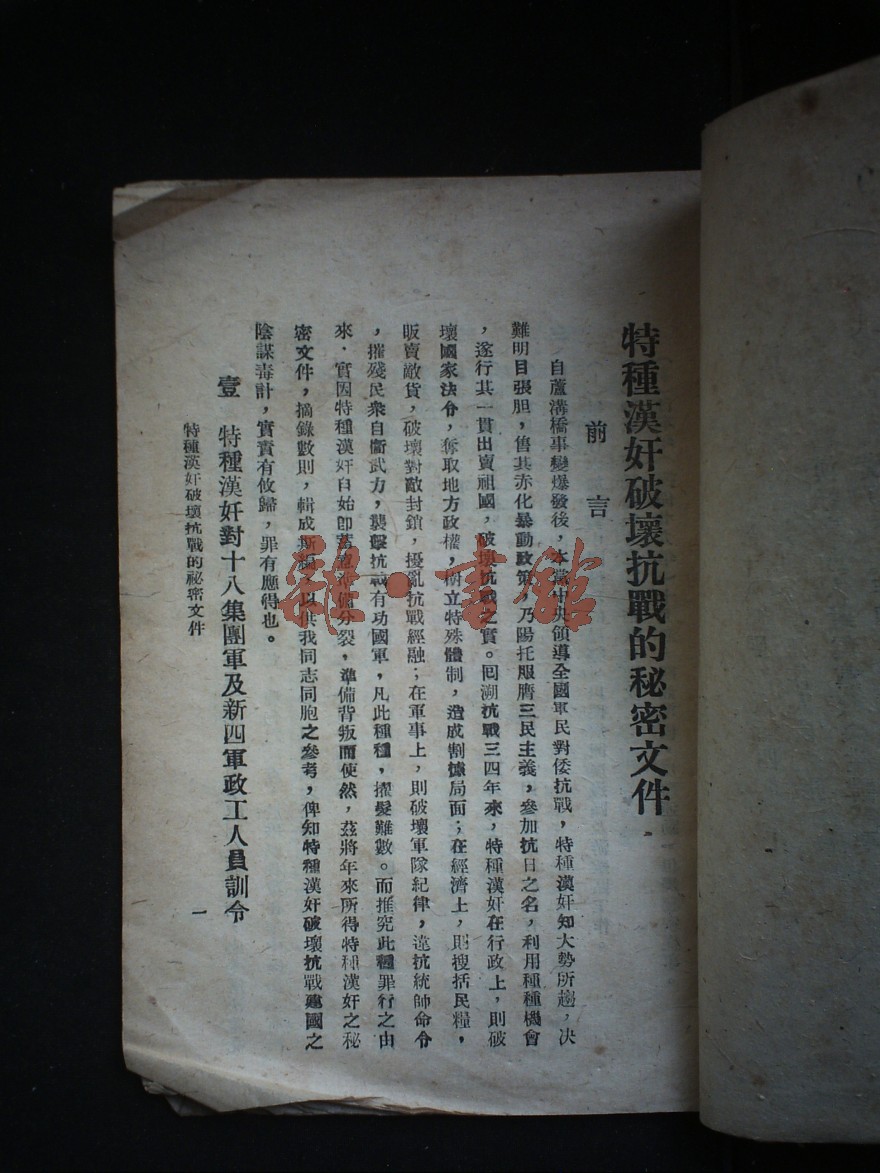 特種漢奸破壞抗戰的秘密文件
前言
自蘆溝橋事變爆發後，本黨中央領導全國軍民對倭抗戰，特種漢奸知大勢所趨，决
難明目張胆，售其赤化暴動政策，乃陽托服膺三民主義，參加抗日之名，利用種種機會
，遂行其一貫出賣祖國，破壞抗戰之實。囘溯抗戰三四年來，特種漢奸在行政上，則破
壞國家法令，奪取地方政權，樹立特殊體制，造成割據局面；在經濟上，則搜括民糧，
販賣敵貨，破壞對敵封鎖，擾亂抗戰經融；在軍事上，則破壞軍隊紀律，違抗統帥命令
，摧殘民衆自衞武力，襲擊抗戰有功國軍，凡此種種，擢髮難數。而推究此種罪行之由
來．實因特種漢奸自始卽蓄意準備分裂，準備背叛而使然，茲將年來所得特種漢奸之秘
密文件，摘錄數則，輯成斯編，以供我同志同胞之參考，俾知特種漢奸破壞抗戰建國之
陰謀毒計，實責有攸歸，罪有應得也。
壹　特種漢奸對十八集團軍及新四軍政工人員訓令
特種漢奸破壞抗戰的祕密文件
一
雜·書館